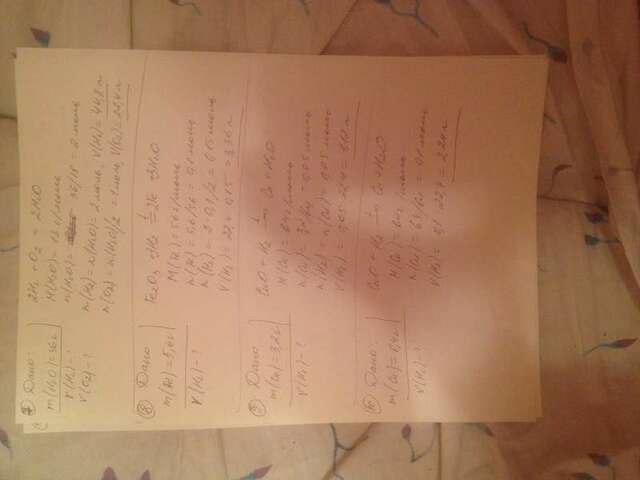 Дано:
m(H₂O)=36г
V(H₂)-?
V(O₂)-?
2H₂ + O₂ = 2H₂O
M(H₂O) = 18 г/моль
n(H₂O) = 36/18 = 2 моль
n(H₂) = n(H₂O) = 2 моль, V(H₂) = 44,8 л
n(O₂) = n(H₂O)/2 = 1 моль, V(O₂) = 22,4 л
⑧ Дано
m(Fe)=5,6г
V(H₂)-?
Fe₂O₃ + 3H₂ = 2Fe + 3H₂O
M(Fe) = 56 г/моль
n(Fe) = 5,6/56 = 0,1 моль
n(H₂) = 3·0,1/2 = 0,15 моль
V(H₂) = 22,4·0,15 = 3,36 л
⑨ Дано
m(Cu)=3,2г
V(H₂)-?
CuO + H₂ = Cu + H₂O
M(Cu) = 64 г/моль
n(Cu) = 3,2/64 = 0,05 моль
n(H₂) = n(Cu) = 0,05 моль
V(H₂) = 0,05·22,4 =
⑩ Дано:
m(Cu)=6,4г
V(H₂)-?
CuO + H₂ = Cu + H₂O
M(Cu) = 64 г/моль
n(Cu) = 6,4/64 = 0,1 моль
V(H₂) = 0,1·22,4 = 2,24 л